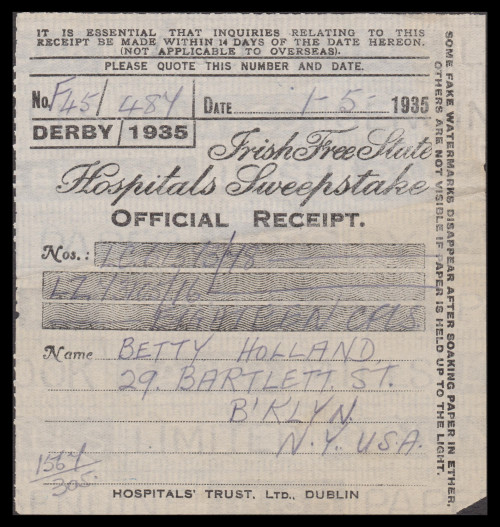 IT IS ESSENTIAL THAT INQUIRIES RELATING TO THIS
RECEIPT BE MADE WITHIN 14 DAYS OF THE DATE HEREON.
(NOT APPLICABLE TO OVERSEAS).
PLEASE QUOTE THIS NUMBER AND DATE.
No. F45/484 DATE 1-5- 1935
DERBY/1935
Irish Free State
Hospitals Sweepstake
OFFICIAL RECEIPT.
Nos.:
EIGHTEEN CPLS
Name BETTY HOLLAND,
29. BARTLETT. ST.
B'KLYN.
N.Y. U.S.A.
HOSPITALS' TRUST, LTD., DUBLIN
SOME FAKE WATERMARKS DISAPPEAR AFTER SOAKING PAPER IN ETHER.
OTHERS ARE NOT VISIBLE IF PAPER IS HELD UP TO THE LIGHT.